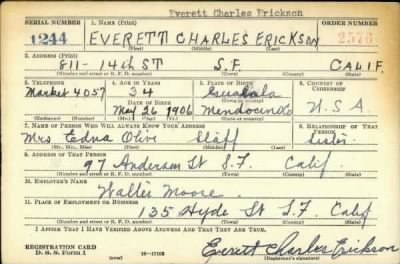 Everett Charles Erickson
SERIAL NUMBER 1. NAME (Print) ORDER NUMBER
1244 EVERETT CHARLES ERICKSON 2576
(First) (Middle) (Last)
2. ADDRESS (Print)
811- 14th ST S.F. CALIF.
(Number and street or R. F. D. number) (Town) (County) (State)
3. TELEPHONE 4. AGE IN YEARS 5. PLACE OF BIRTH 6. COUNTRY OF CITIZENSHIP
Market 4057 34 Gualala
DATE OF BIRTH
May 26 1906 Mendocino Co U.S.A
(Exchange) (Number) (Mo.) (Day) (Yr.) (State or country)
7. NAME OF PERSON WHO WILL ALWAYS KNOW YOUR ADDRESS 8. RELATIONSHIP OF THAT PERSON
Mrs Edna Olive Sister
(Mr., Mrs., Miss) (First) (Middle) (Last)
9. ADDRESS OF THAT PERSON
97 Anderson St S.F. Calif.
(Number and street or R. F. D. number) (Town) (County) (State)
10. EMPLOYER'S NAME
Walter Moore
11. PLACE OF EMPLOYMENT OR BUSINESS
135 Hyde St S.F. Calif
(Number and street or R. F. D. number) (Town) (County) (State)
I AFFIRM THAT I HAVE VERIFIED ABOVE ANSWERS AND THAT THEY ARE TRUE.
REGISTRATION CARD
D. S. S. Form 1 (over) 16-17105
Everett Charles Erickson
(Registrant's signature)